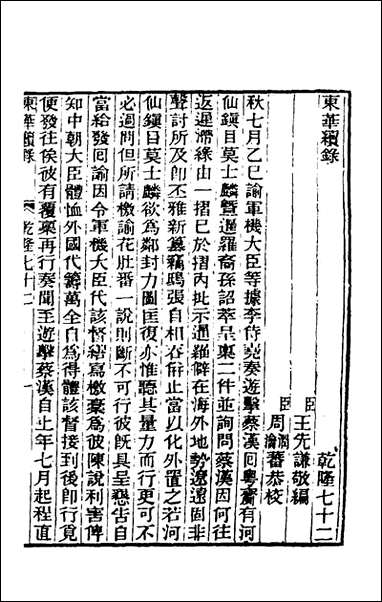 東華續錄
乾隆七十二
臣王先謙敬編
臣周潤蕃周瀹蕃恭校
秋七月乙巳諭軍機大臣等據李侍堯奏遊擊蔡漢回粵齎有河
仙鎮目莫士麟暨暹羅裔孫詔萃呈稟二件並詢問蔡漢因何往
返遲滯緣由一摺已於摺內批示暹羅僻在海外地勢遼遠固非
聲討所及卽丕雅新篡竊鴟張自相吞倂止當以化外置之若河
仙鎮目莫士麟欲爲鄰封力圖匡復亦惟聽其量力而行更可不
必過問但所請檄諭花肚番一說則斷不可行彼旣具呈懇吿自
當給發回諭因令軍機大臣代該督繕寫檄稾爲彼陳說利害俾
知中朝大臣體恤外國代籌萬全自爲得體該督接到後卽行覓
便發往俟彼有覆稟再行奏聞至遊擊蔡漢自上年七月起程直
東華續錄
乾隆七十二
一